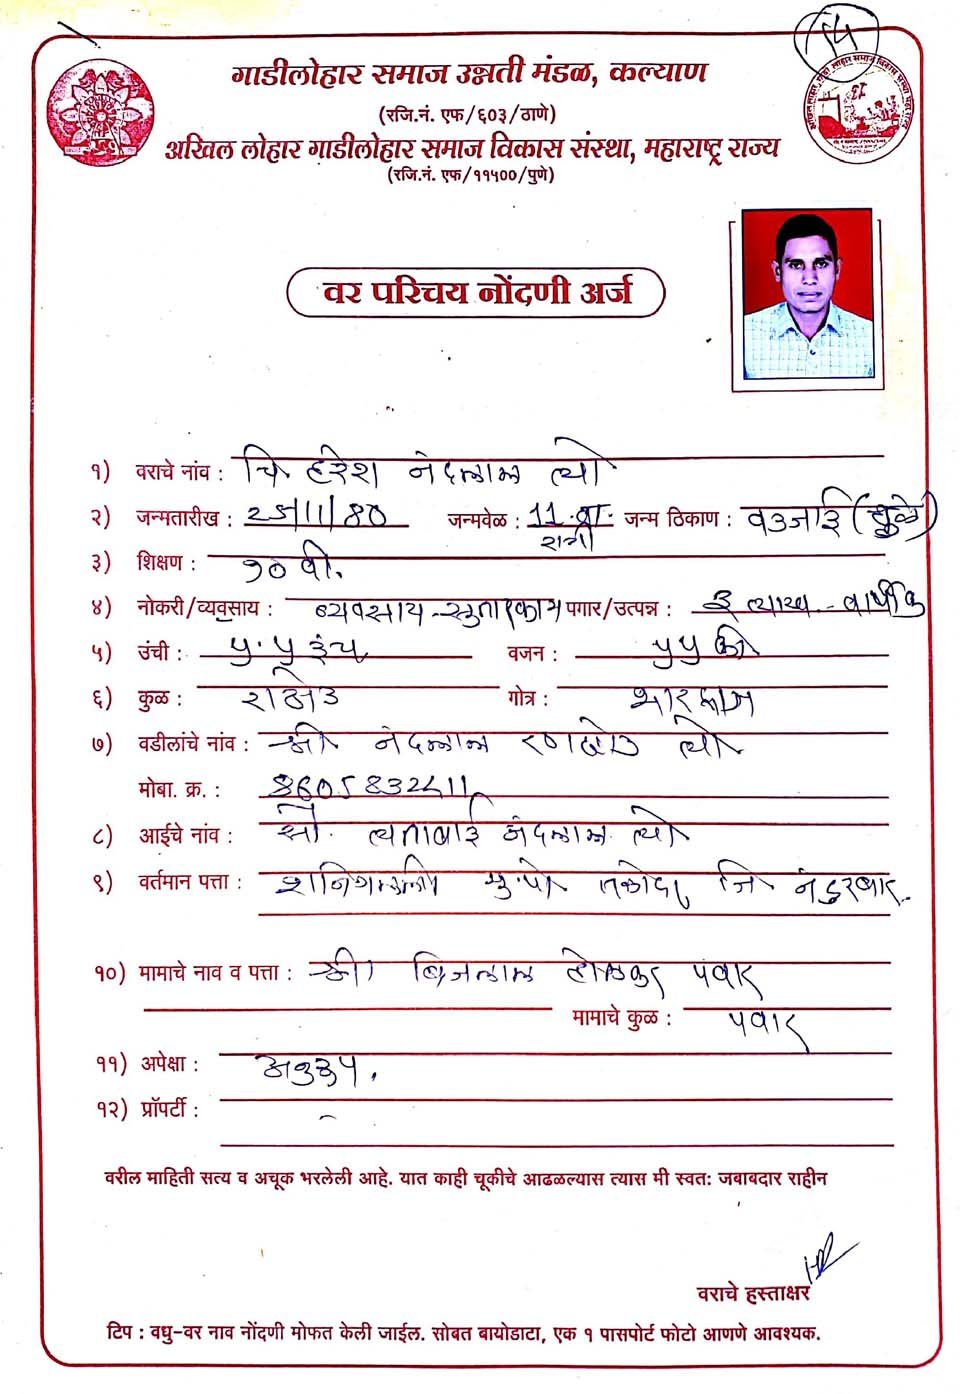 गाडीलोहार समाज उन्नती मंडळ, कल्याण
(रजि.नं. एफ/६०३/ठाणे)
अखिल लोहार गाडीलोहार समाज विकास संस्था, महाराष्ट्र राज्य
(रजि.नं. एफ/११५००/पुणे)
वर परिचय नोंदणी अर्ज
१) वराचे नांव : चि हरेश नंदलाल
२) जन्मतारीख : जन्मवेळ : 11 वा. रात्री जन्म ठिकाण : (धुळे)
३) शिक्षण : १० वी.
४) नोकरी/व्यवसाय : व्यवसाय - सुतारकाम पगार/उत्पन्न : वार्षीक
५) उंची : ५.५ इंच वजन : ५५ की
६) कुळ : राठोड गोत्र : भारद्वाज
७) वडीलांचे नांव : श्री नंदलाल रणछोड
मोबा. क्र. :
८) आईचे नांव : सौ. नंदलाल
९) वर्तमान पत्ता : शनिगल्ली मु.पो तळोदा जि नंदुरबार.
१०) मामाचे नाव व पत्ता : श्री ब्रिजलाल पवार
मामाचे कुळ : पवार
११) अपेक्षा : अनुरूप.
१२) प्रॉपर्टी : -
वरील माहिती सत्य व अचूक भरलेली आहे. यात काही चूकीचे आढळल्यास त्यास मी स्वत: जबाबदार राहीन
वराचे हस्ताक्षर
टिप : वधु-वर नाव नोंदणी मोफत केली जाईल. सोबत बायोडाटा, एक १ पासपोर्ट फोटो आणणे आवश्यक.